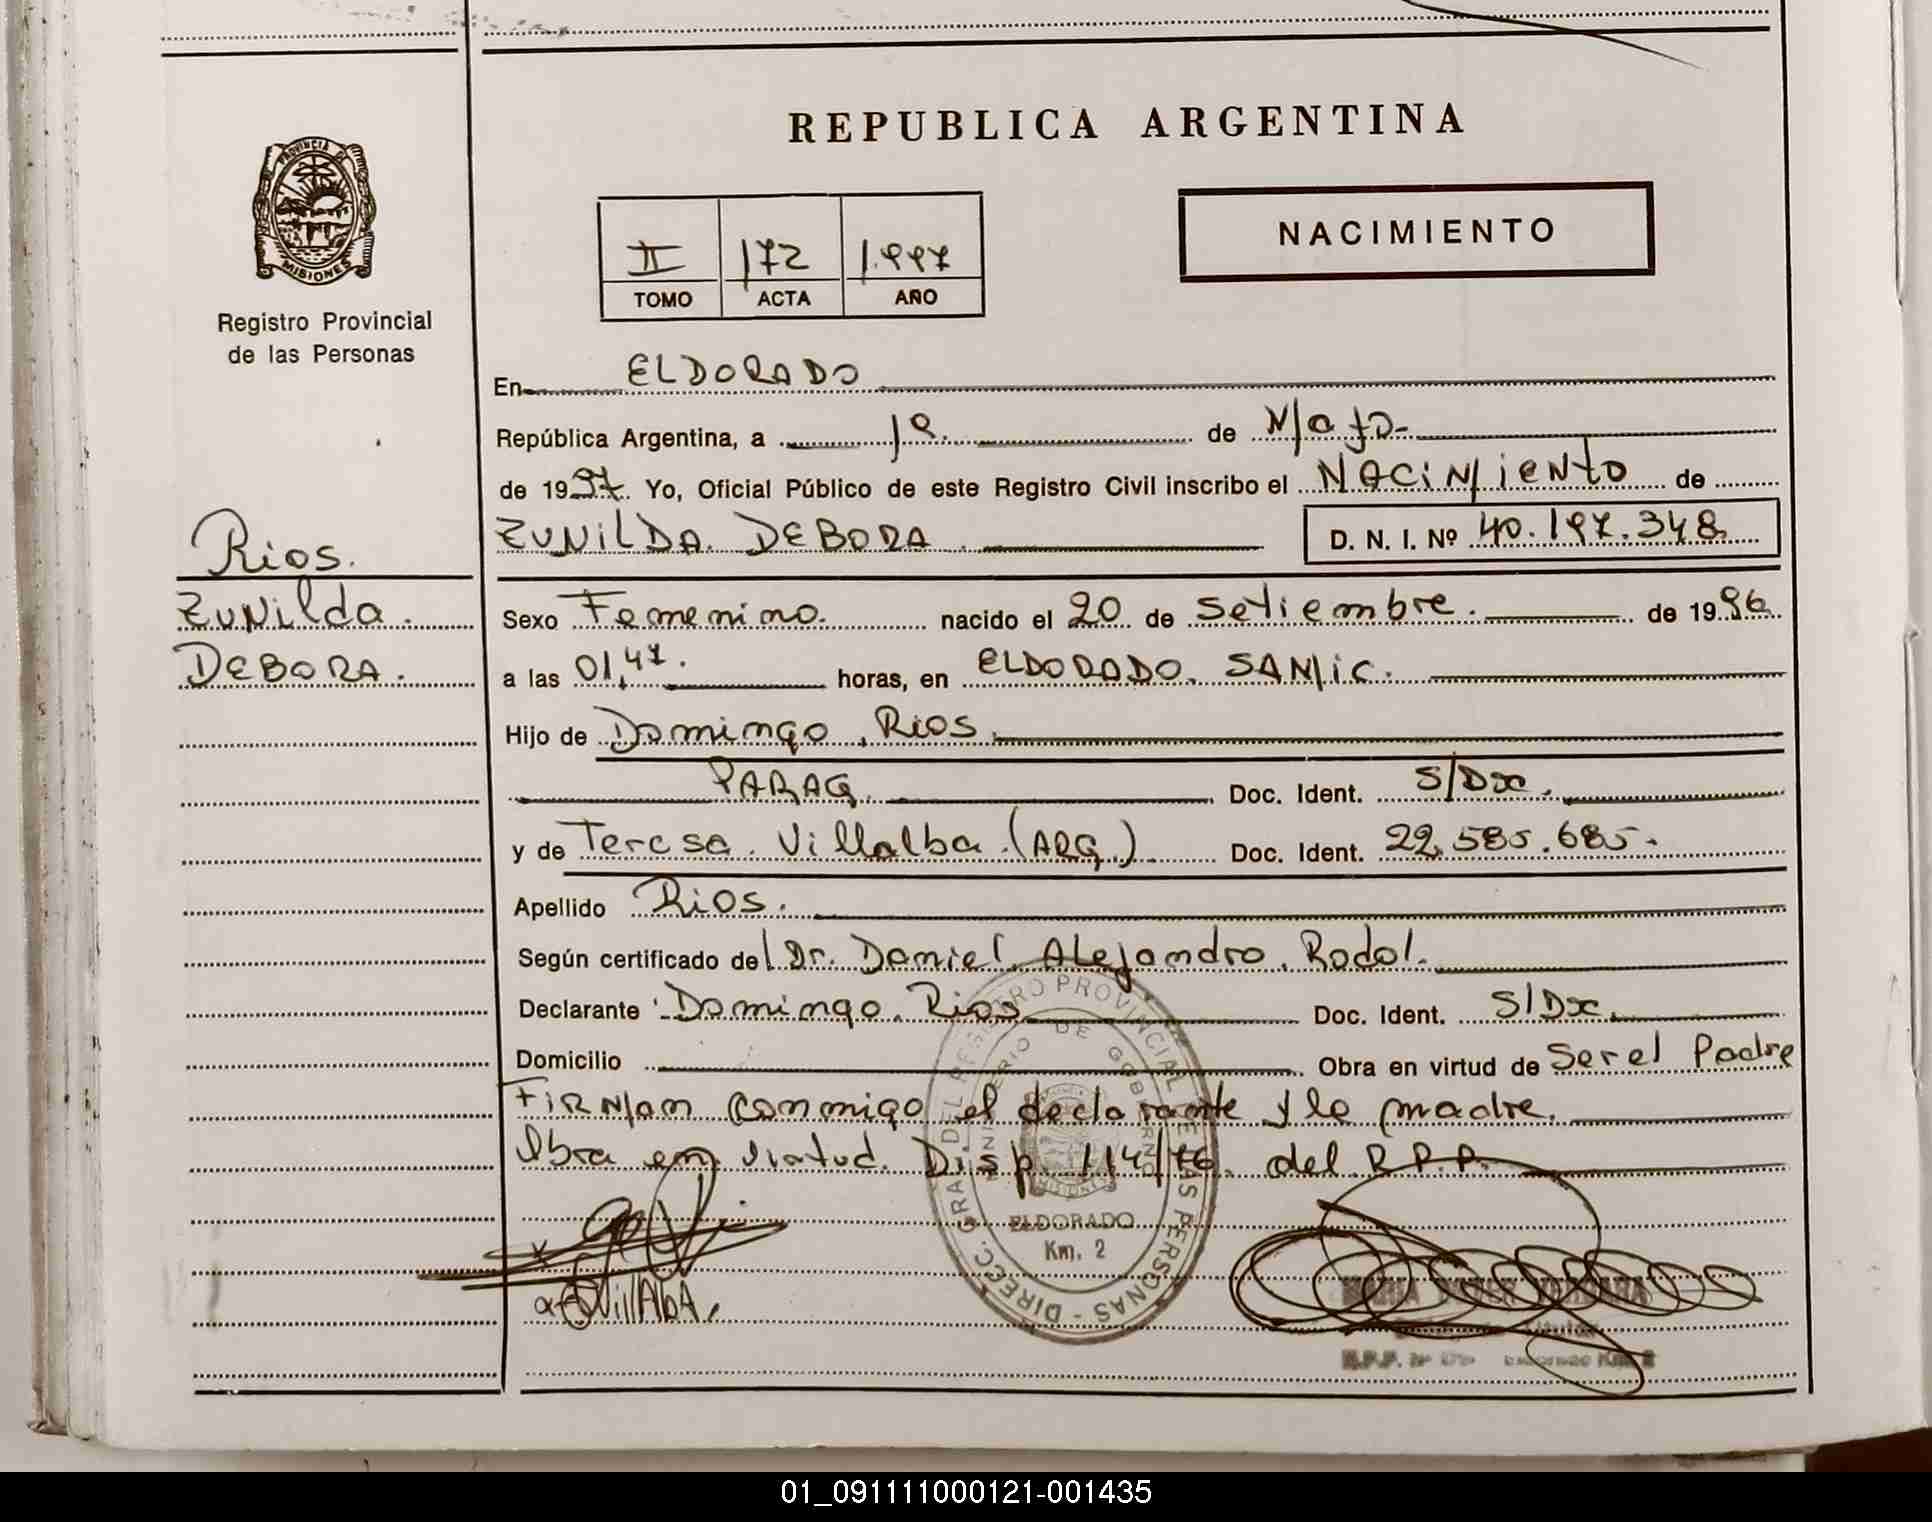 REPUBLICA ARGENTINA
PROVINCIA DE MISIONES
Registro Provincial
de las Personas
II 172 1.997
TOMO ACTA AÑO
NACIMIENTO
En ELDORADO
República Argentina, a 1º. de Mayo.
de 1997. Yo, Oficial Público de este Registro Civil inscribo el NACIMIENTO de
ZUNILDA DEBORA. D. N. I. Nº 40.197.348
Rios.
Zunilda.
DEBORA.
Sexo Femenino. nacido el 20 de Setiembre. de 1996
a las 01,47. horas, en ELDORADO. SAMIC.
Hijo de Domingo Rios
PARAG. Doc. Ident. S/Doc.
y de Teresa Villalba (ARG.) Doc. Ident. 22.585.685.
Apellido Rios.
Según certificado del Dr. Daniel Alejandro Rodol.
Declarante Domingo Rios Doc. Ident. S/Doc.
Domicilio Obra en virtud de Ser el Padre
FIRMAN conmigo el declarante y la madre.
Obra en virtud. Disp. 114/76. del R.P.P.
DIREC. GRAL. DEL REGISTRO PROVINCIAL DE LAS PERSONAS
MINISTERIO DE GOBIERNO
MISIONES
ELDORADO
Km. 2
Villalba.
01_091111000121-001435